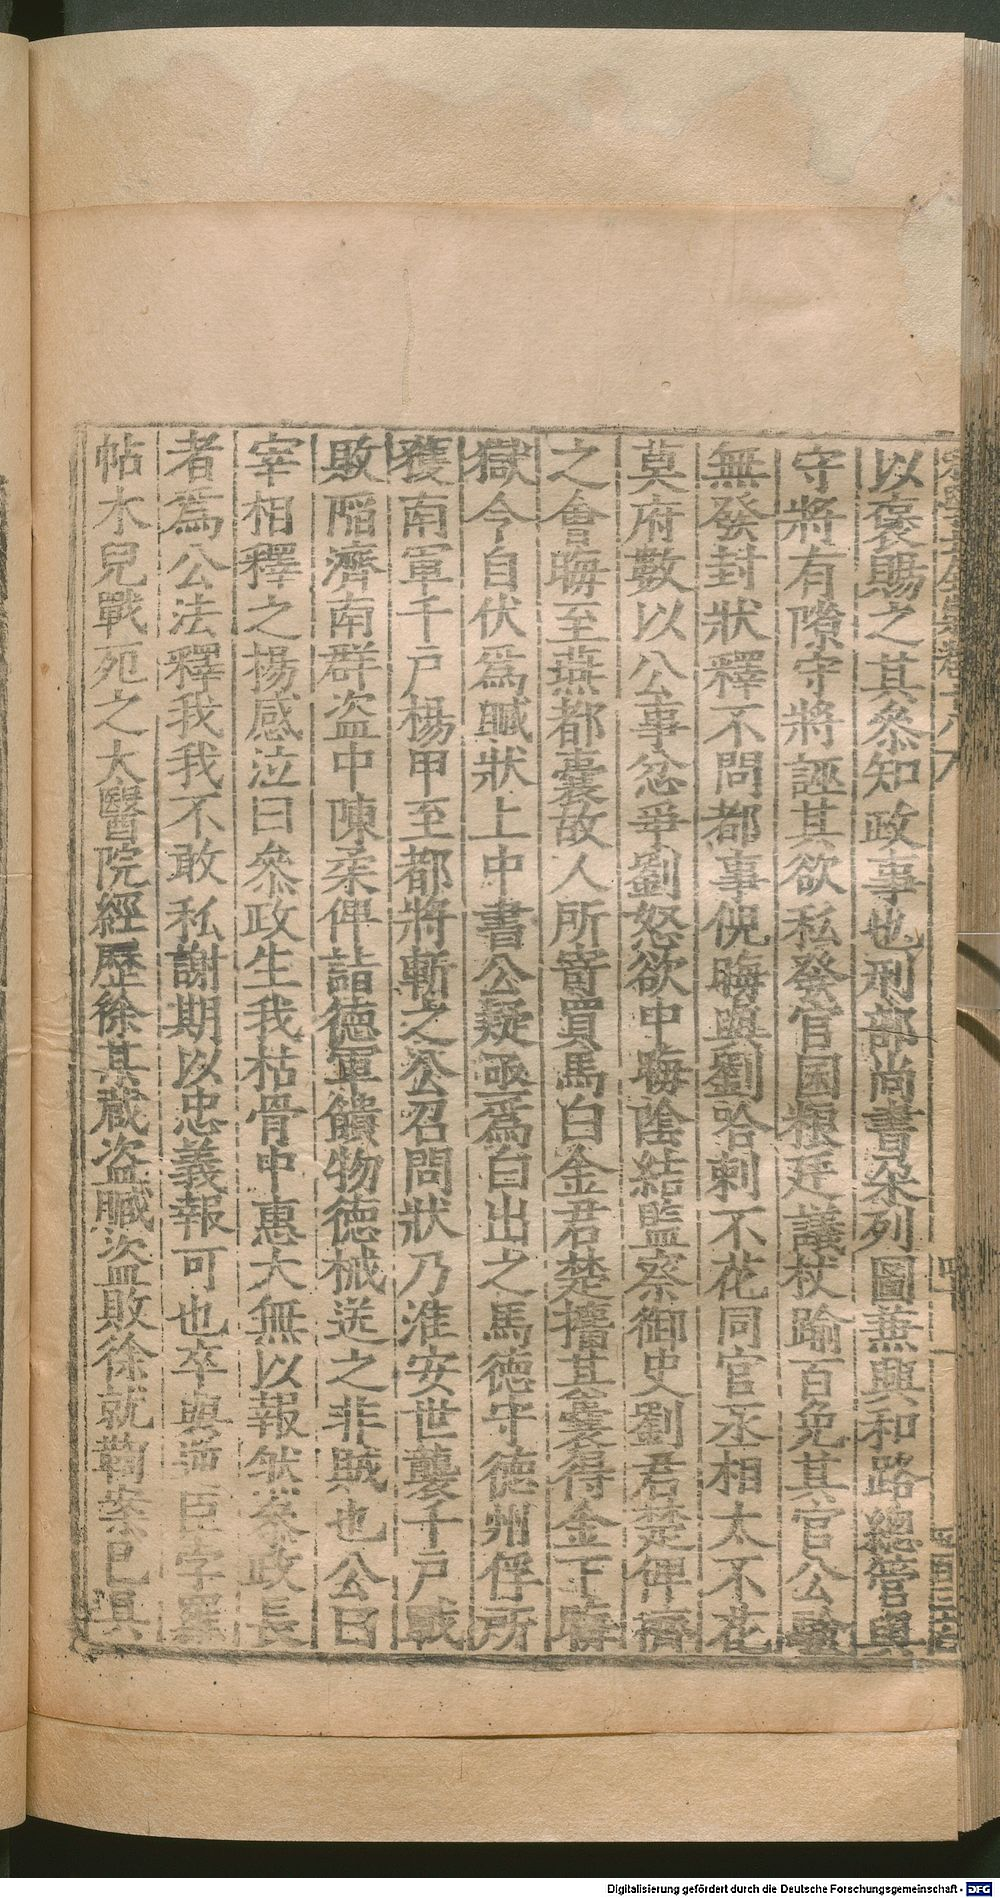 以褒賜之其叅知政事也刑部尚書朶列圖蕪興和路總管與
守將有隙守將誣其欲私發官囷粳廷議杖踰百免其官公驗
無發封狀釋不問都事倪晦與劉哈剌不花同官丞相太不花
莫府數以公事忿爭劉怒欲中晦陰結監察御史劉君楚俾擠
之會晦至燕都囊故人所寄買馬白金君楚擿其囊得金下晦
獄令自伏爲贓狀上中書公疑亟爲白出之馬德守德州俘所
獲南軍千戶楊甲至都將斬之公召問狀乃淮安世襲千戶戰
敗陷濟南群盜中陳柔俾詣德軍饋物德械送之非賊也公曰
宰相釋之楊感泣曰叅政生我枯骨中惠大無以報然叅政長
者爲公法釋我我不敢私謝期以忠義報可也卒與 臣字羅
帖木兒戰死之大醫院經歷徐某藏盜贓盜敗徐就鞫案已具
Digitalisierung gefördert durch die Deutsche Forschungsgemeinschaft - DFG